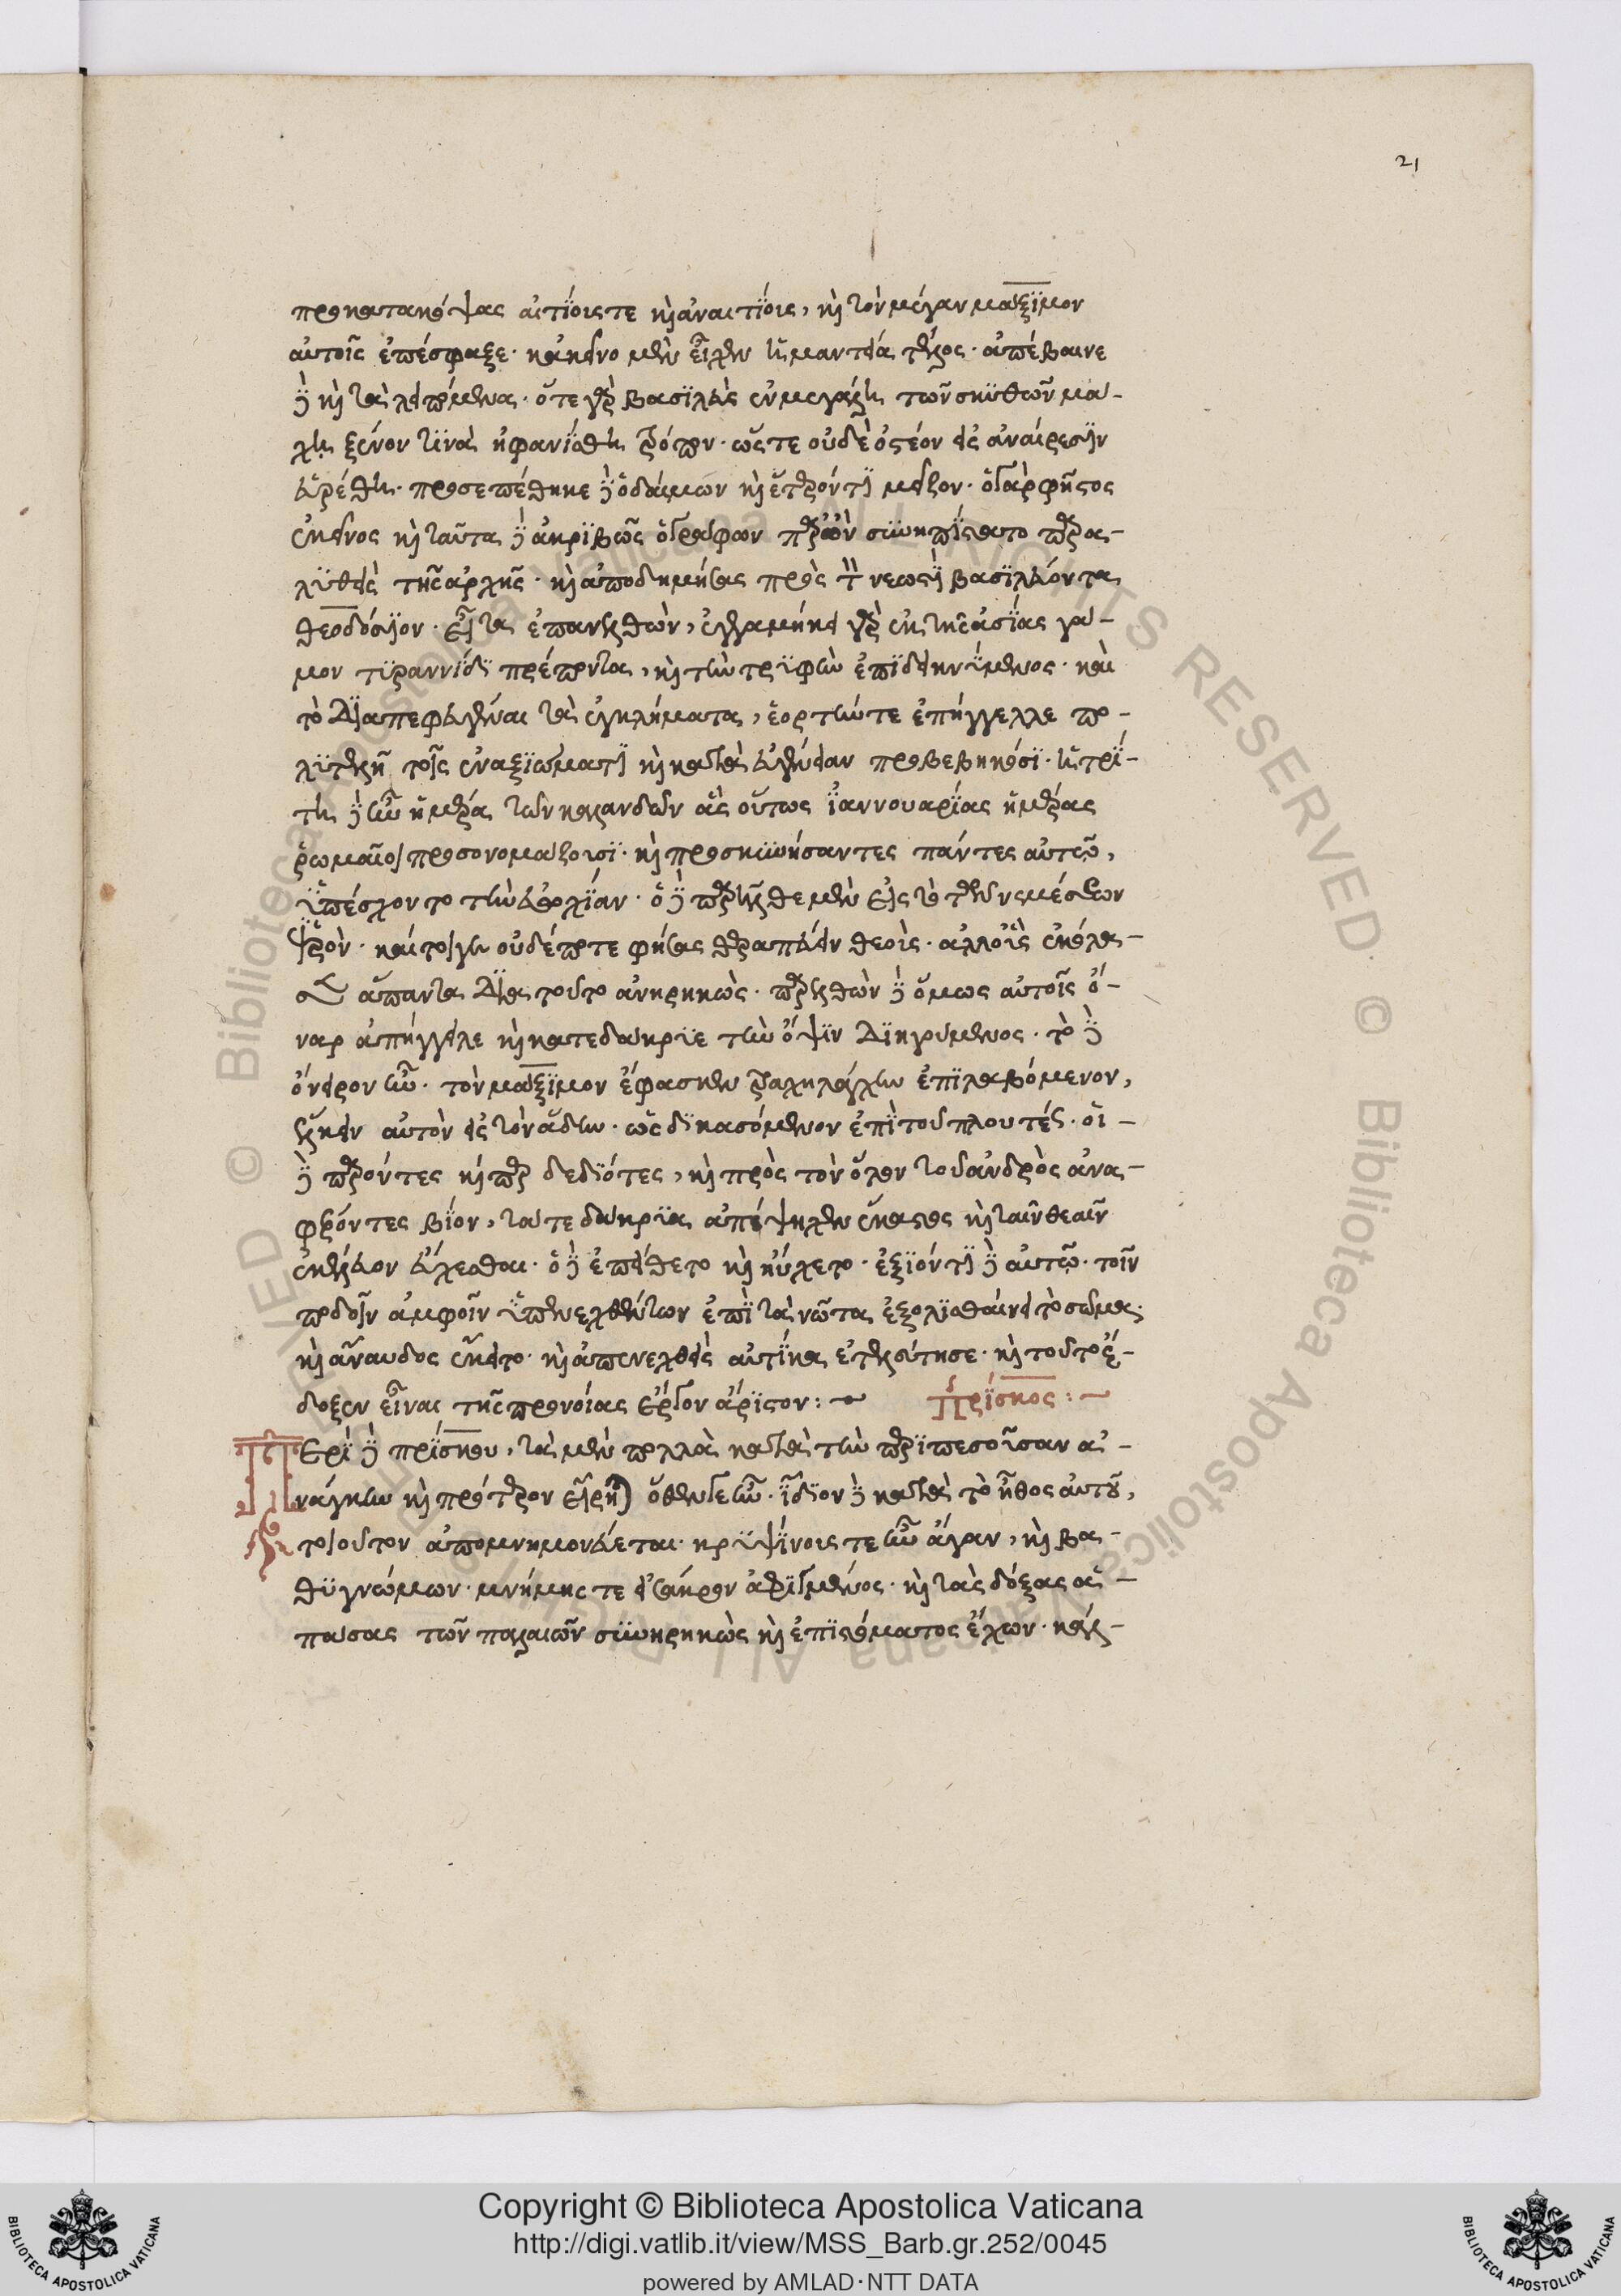 21
προκατακόψας αἰτίοις τε κὶ ἀναιτίοις, κὶ τὸν μέγαν μάξϊμον
αὐτοῖς ἐπέσφαξε· κἀκεῖνο μὲν εἶχεν ἡ μαντεία τέλος· ἀπέβαινε
δὲ κὶ τὰ λειπόμενα· ὅτε γὰρ βασϊλεὺς ἐν μεγάλη τῶν σκυθῶν μά-
χη ξένον τινὰ ἠφανίσθη τρόπον· ὥστε οὐδὲ ὀστέον εἰς ἀναίρεσϊν
εὑρέθη· προσεπέθηκε δὲ ὁ δαίμων κὶ ἕτερόν τϊ μεῖζον· ὁ γὰρ φῆστος
ἐκεῖνος κὶ ταῦτα δὲ ἀκρϊβῶς ὁ γράφων παρὼν συνηπίστατο παρα-
λυθεὶς τῆς ἀρχῆς· κὶ ἀποδημήσας πρὸς τὸν νεωστὶ βασϊλεύοντα
θεοδόσϊον· εἶτα ἐπανελθὼν, ἐγεγαμήκει γὰρ ἐκ τῆς ἀσίας γά-
μον τυραννίδϊ πρέποντα, κὶ τὴν τρυφὴν ἐπϊδεικνύμενος· καὶ
τὸ διαπεφευγέναι τὰ ἐγκλήματα, ἑορτήν τε ἐπήγγελλε πο-
λυτελῆ τοῖς ἐν ἀξϊώματϊ κὶ κατὰ εὐγένειαν προβεβηκόσϊ· ἡ τρί-
τη δὲ ἦν ἡμέρα τῶν καλανδῶν ἃς οὕτως ἰαννουαρίας ἡμέρας
ῥωμαῖοι προσονομάζουσϊ· κὶ προσκυνήσαντες πάντες αὐτῷ,
ὑπέσχοντο τὴν εὐωχίαν· ὁ δὲ παρῆλθε μὲν εἰς τὸ τῶν νεμέσεων
ἱερὸν· καίτοιγε οὐδέποτε φήσας θεραπεύειν θεοὺς· ἀλλ' οὓς ἐκόλα-
σεν ἅπαντας διὰ τοῦτο ἀνῃρηκὼς· παρελθὼν δὲ ὅμως αὐτοῖς ὄ-
ναρ ἀπήγγειλε κὶ κατεδάκρυε τὴν ὄψιν διηγούμενος· τὸ δὲ
ὄνειρον ἦν· τὸν μάξϊμον ἔφασκεν τραχηλάγχην ἐπϊλαβόμενον,
ἕλκειν αὐτὸν εἰς τὸν ἅδην· ὡς δϊκασόμενον ἐπὶ τοῦ πλουτέως· οἱ-
δὲ παρόντες καίπερ δεδϊότες, κὶ πρὸς τὸν ὅλον τοῦ ἀνδρὸς ἀνα-
φέροντες βίον, τά τε δάκρυα ἀπέψηχεν ἕκαστος κὶ ταῖν θεαῖν
ἐκέλευον εὔχεσθαι· ὁ δὲ ἐπείθετο κὶ ηὔχετο· ἐξϊόντϊ δὲ αὐτῷ· τοῖν
ποδοῖν ἀμφοῖν ὑπενεχθέντων ἐπὶ τὰ νῶτα ἐξολισθαίνει τὸ σῶμα·
κὶ ἄναυδος ἔκειτο· κὶ ἀπενεχθεὶς αὐτίκα ἐτελεύτησε· κὶ τοῦτο ἔ-
δοξεν εἶναι τῆς προνοίας ἔργον ἄρϊστον:~ Πρίσκος:~
Περὶ δὲ πρίσκου, τὰ μὲν πολλὰ κατὰ τὴν περϊπεσοῦσαν ἀ-
νάγκην κὶ πρότερον εἴρηται ὅθεν γε ἦν· ἴδϊον δὲ κατὰ τὸ ἦθος αὐτοῦ,
τοιοῦτον ἀπομνημονεύεται· κρυψίνους τε ἦν ἄγαν, κὶ βα-
θυγνώμων· μνήμης τε εἰς ἄκρον ἀφϊγμένος· κὶ τὰς δόξας ἁ-
πάσας τῶν παλαιῶν συνῃρηκὼς κὶ ἐπὶ στόματος ἔχων· κάλ-
Copyright © Biblioteca Apostolica Vaticana
http://digi.vatlib.it/view/MSS_Barb.gr.252/0045
powered by AMLAD·NTT DATA